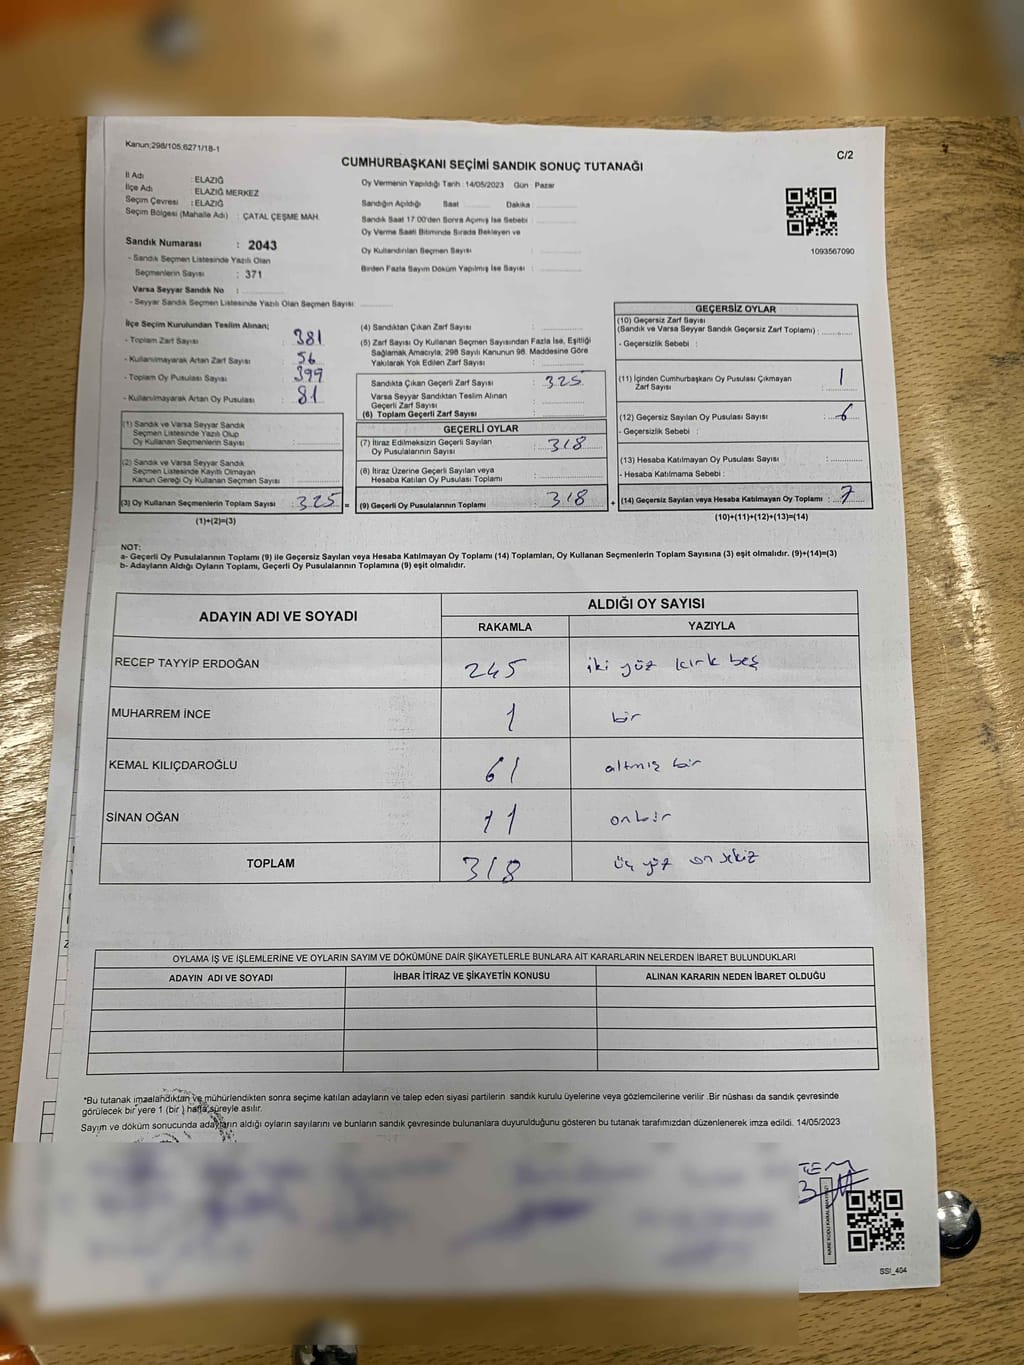 Kanun:298/105;6271/18-1
C/2
CUMHURBAŞKANI SEÇİMİ SANDIK SONUÇ TUTANAĞI
İl Adı : ELAZIĞ
İlçe Adı : ELAZIĞ MERKEZ
Seçim Çevresi : ELAZIĞ
Seçim Bölgesi (Mahalle Adı) : ÇATAL ÇEŞME MAH.
Sandık Numarası : 2043
- Sandık Seçmen Listesinde Yazılı Olan
Seçmenlerin Sayısı : 371
Varsa Seyyar Sandık No :
- Seyyar Sandık Seçmen Listesinde Yazılı Olan Seçmen Sayısı:
Oy Vermenin Yapıldığı Tarih :14/05/2023 Gün : Pazar
Sandığın Açıldığı Saat Dakika :
Sandık Saat 17:00'den Sonra Açımış İse Sebebi :
Oy Verme Saati Bitiminde Sırada Bekleyen ve
Oy Kullandırılan Seçmen Sayısı :
Birden Fazla Sayım Döküm Yapılmış İse Sayısı :
1093567090
İlçe Seçim Kurulundan Teslim Alınan;
- Toplam Zarf Sayısı : 381
- Kullanılmayarak Artan Zarf Sayısı : 56
- Toplam Oy Pusulası Sayısı : 399
- Kullanılmayarak Artan Oy Pusulası : 81
(1) Sandık ve Varsa Seyyar Sandık
Seçmen Listesinde Yazılı Olup
Oy Kullanan Seçmenlerin Sayısı :
(2) Sandık ve Varsa Seyyar Sandık
Seçmen Listesinde Kayıtlı Olmayan
Kanun Gereği Oy Kullanan Seçmen Sayısı :
(3) Oy Kullanan Seçmenlerin Toplam Sayısı : 325 =
(1)+(2)=(3)
(4) Sandıktan Çıkan Zarf Sayısı :
(5) Zarf Sayısı Oy Kullanan Seçmen Sayısından Fazla İse, Eşitliği
Sağlamak Amacıyla; 298 Sayılı Kanunun 98. Maddesine Göre
Yakılarak Yok Edilen Zarf Sayısı :
Sandıkta Çıkan Geçerli Zarf Sayısı : 325
Varsa Seyyar Sandıktan Teslim Alınan
Geçerli Zarf Sayısı :
(6) Toplam Geçerli Zarf Sayısı :
GEÇERLİ OYLAR
(7) İtiraz Edilmeksizin Geçerli Sayılan
Oy Pusulalarının Sayısı : 318
(8) İtiraz Üzerine Geçerli Sayılan veya
Hesaba Katılan Oy Pusulası Toplamı :
(9) Geçerli Oy Pusulalarının Toplamı : 318 +
GEÇERSİZ OYLAR
(10) Geçersiz Zarf Sayısı
(Sandık ve Varsa Seyyar Sandık Geçersiz Zarf Toplamı) :
- Geçersizlik Sebebi :
(11) İçinden Cumhurbaşkanı Oy Pusulası Çıkmayan
Zarf Sayısı : 1
(12) Geçersiz Sayılan Oy Pusulası Sayısı : 6
- Geçersizlik Sebebi :
(13) Hesaba Katılmayan Oy Pusulası Sayısı :
- Hesaba Katılmama Sebebi :
(14) Geçersiz Sayılan veya Hesaba Katılmayan Oy Toplamı : 7
(10)+(11)+(12)+(13)=(14)
NOT:
a- Geçerli Oy Pusulalarının Toplamı (9) ile Geçersiz Sayılan veya Hesaba Katılmayan Oy Toplamı (14) Toplamları, Oy Kullanan Seçmenlerin Toplam Sayısına (3) eşit olmalıdır. (9)+(14)=(3)
b- Adayların Aldığı Oyların Toplamı, Geçerli Oy Pusulalarının Toplamına (9) eşit olmalıdır.
ADAYIN ADI VE SOYADI ALDIĞI OY SAYISI
RAKAMLA YAZIYLA
RECEP TAYYİP ERDOĞAN 245 iki yüz kırk beş
MUHARREM İNCE 1 bir
KEMAL KILIÇDAROĞLU 61 altmış bir
SİNAN OĞAN 11 onbir
TOPLAM 318 üç yüz on sekiz
OYLAMA İŞ VE İŞLEMLERİNE VE OYLARIN SAYIM VE DÖKÜMÜNE DAİR ŞİKAYETLERLE BUNLARA AİT KARARLARIN NELERDEN İBARET BULUNDUKLARI
ADAYIN ADI VE SOYADI İHBAR İTİRAZ VE ŞİKAYETİN KONUSU ALINAN KARARIN NEDEN İBARET OLDUĞU
*Bu tutanak imzalandıktan ve mühürlendikten sonra seçime katılan adayların ve talep eden siyasi partilerin sandık kurulu üyelerine veya gözlemcilerine verilir .Bir nüshası da sandık çevresinde
görülecek bir yere 1 (bir ) hafta süreyle asılır.
Sayım ve döküm sonucunda adayların aldığı oyların sayılarını ve bunların sandık çevresinde bulunanlara duyurulduğunu gösteren bu tutanak tarafımızdan düzenlenerek imza edildi. 14/05/2023
SSI_404